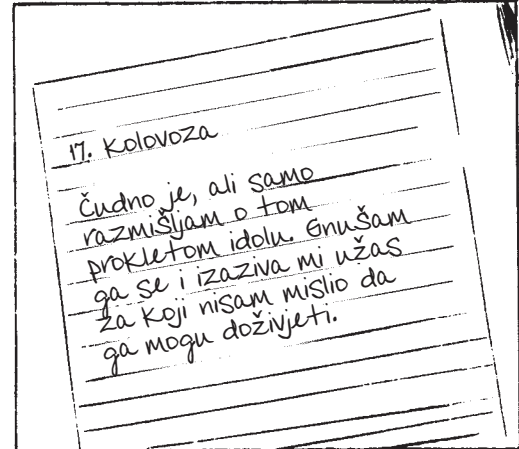 17. Kolovoza
Čudno je, ali samo
razmišljam o tom
prokletom idolu. Gnušam
ga se i izaziva mi užas
za koji nisam mislio da
ga mogu doživjeti.